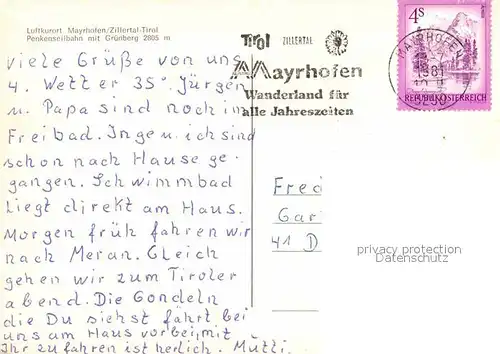 Luftkurort Mayrhofen/Zillertal-Tirol
Penkenseilbahn mit Grünberg 2805 m
Viele Grüße von uns
4. Wetter 35° Jürgen
u. Papa sind noch im
Freibad. Inge u. ich sind
schon nach Hause ge-
gangen. Schwimmbad
liegt direkt am Haus.
Morgen früh fahren wir
nach Meran. Gleich
gehen wir zum Tiroler
abend. Die Gondeln
die Du siehst fährt bei
uns am Haus vorbei, mit
Ihr zu fahren ist herlich. Mutti.
Tirol ZILLERTAL
Mayrhofen
Wanderland für
alle Jahreszeiten
4S
MAYRHOFEN
1981
6290
REPUBLIK ÖSTERREICH
Fred
Gar
41 D
privacy protection
Datenschutz